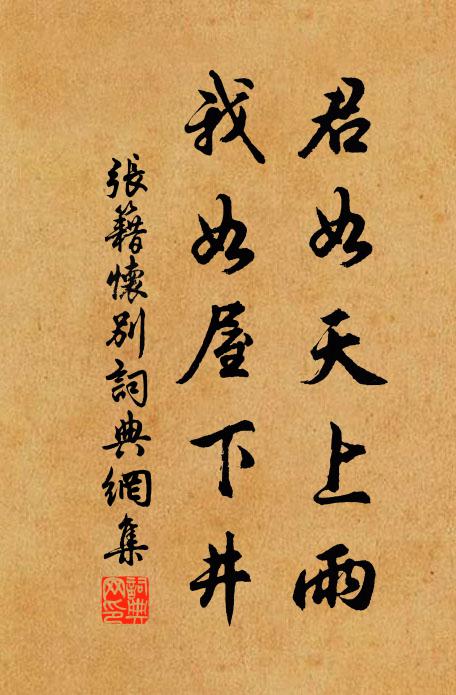 君如天上雨
我如屋下井
張籍懷別詞典網集
詞典
网印